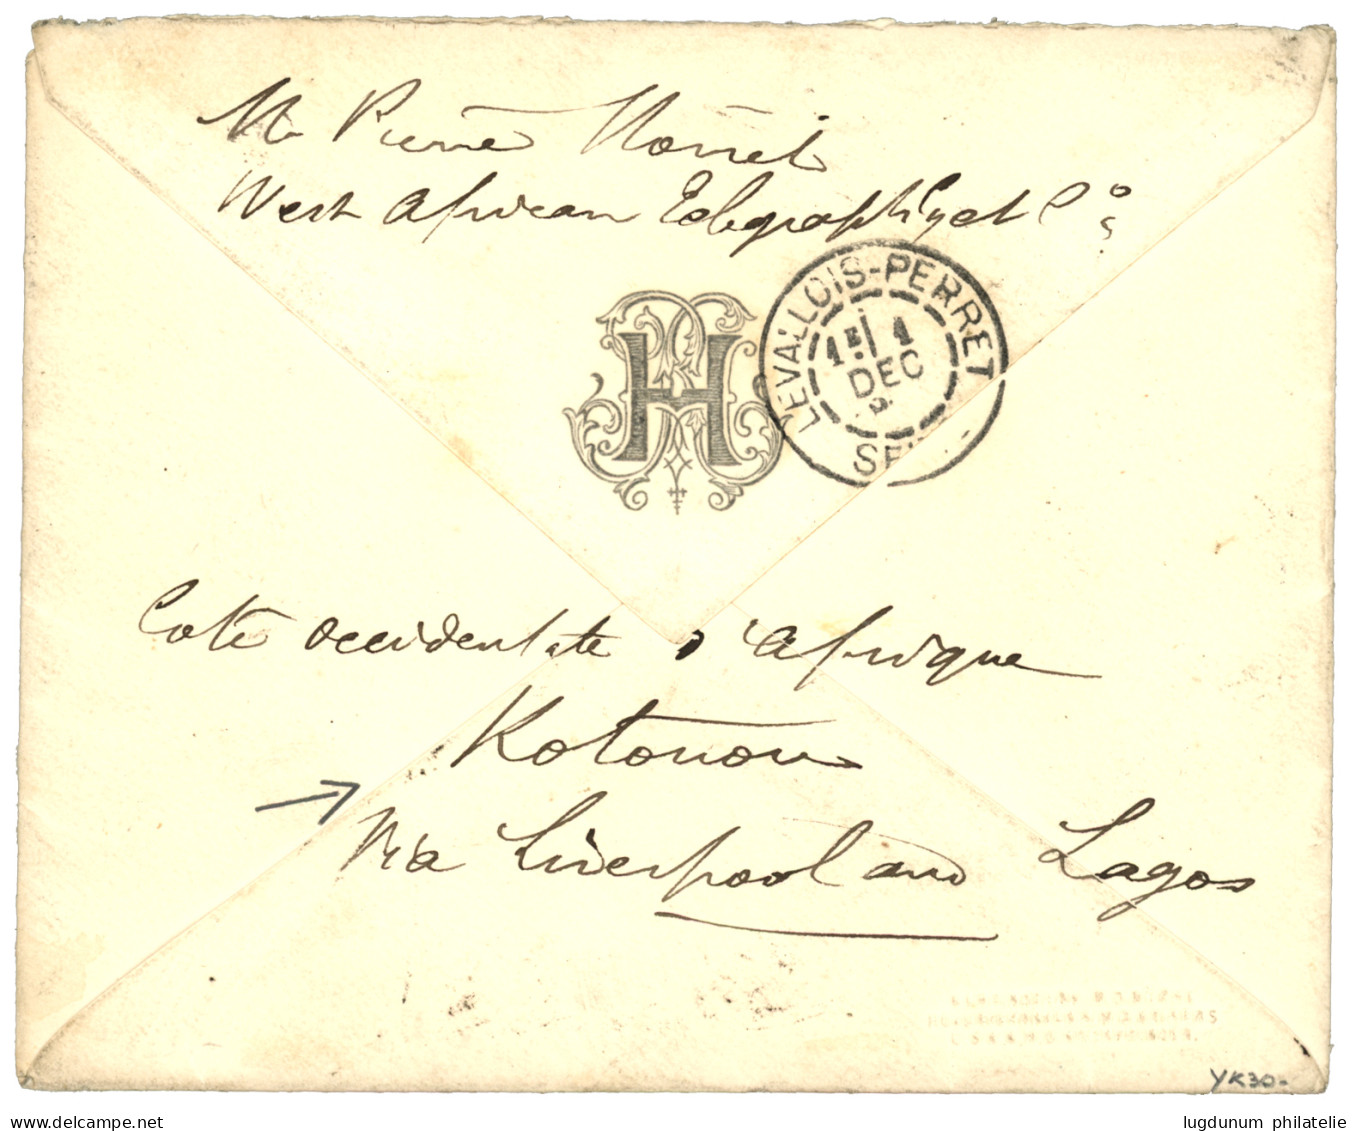 Mr Pierre
West African Telegraph
LEVALLOIS-PERRET
1E/ 1
DEC
H
Cote occidentale d'Afrique
Kotonou
Via Liverpool and Lagos
YK30-
lugdunum philatelie